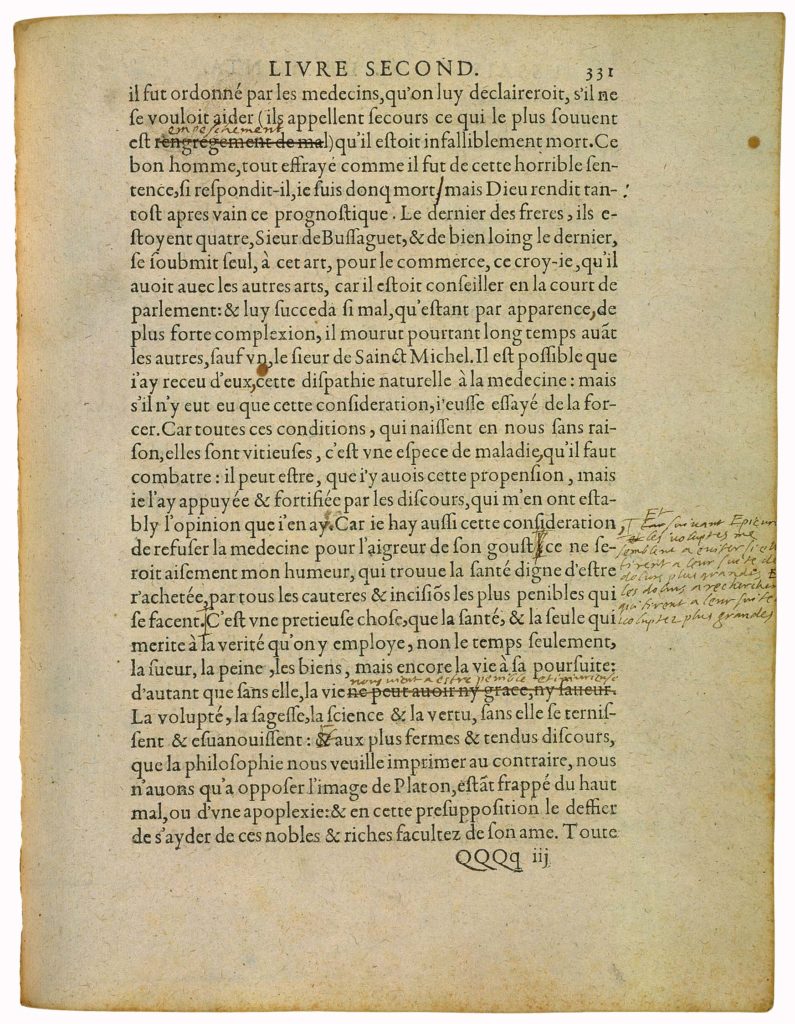 LIVRE SECOND. 331
il fut ordonné par les medecins, qu'on luy declaireroit, s'il ne
se vouloit aider (ils appellent secours ce qui le plus souuent
empeschement
est rengrégement de mal) qu'il estoit infalliblement mort. Ce
bon homme, tout effrayé comme il fut de cette horrible sen-
tence, si respondit-il, ie suis donq mort / mais Dieu rendit tan- :
tost apres vain ce prognostique. Le dernier des freres, ils e-
stoyent quatre, Sieur de Bussaguet, & de bien loing le dernier,
se soubmit seul, à cet art, pour le commerce, ce croy-ie, qu'il
auoit auec les autres arts, car il estoit conseiller en la court de
parlement: & luy succeda si mal, qu'estant par apparence, de
plus forte complexion, il mourut pourtant long temps auãt
les autres, sauf vn, le sieur de Sainct Michel. Il est possible que
i'ay receu d'eux, cette dispathie naturelle à la medecine: mais
s'il n'y eut eu que cette consideration, i'eusse essayé de la for-
cer. Car toutes ces conditions, qui naissent en nous sans rai-
son, elles sont vitieuses, c'est vne espece de maladie, qu'il faut
combatre: il peut estre, que i'y auois cette propension, mais
ie l'ay appuyée & fortifiée par les discours, qui m'en ont esta-
bly l'opinion que i'en ay. Car ie hay aussi cette consideration,
de refuser la medecine pour l'aigreur de son goust ce ne se-
roit aisement mon humeur, qui trouue la santé digne d'estre
r'achetée, par tous les cauteres & incisiõs les plus penibles qui
se facent. C'est vne pretieuse chose, que la santé, & la seule qui
merite à la verité qu'on y employe, non le temps seulement,
la sueur, la peine, les biens, mais encore la vie à sa poursuite:
nous vient a estre penible et iniurieuse
d'autant que sans elle, la vie ne peut auoir ny grace, ny saueur.
La volupté, la sagesse, la science & la vertu, sans elle se ternis-
sent & esuanouissent: & aux plus fermes & tendus discours,
que la philosophie nous veuille imprimer au contraire, nous
n'auons qu'a opposer l'image de Platon, estãt frappé du haut
mal, ou d'vne apoplexie: & en cette presupposition le deffier
de s'ayder de ces nobles & riches facultez de son ame. Toute
QQQq iij
Et
suiuant Epicur
et les voluptes me
semblent a euiter si
tirent a leur suite d
dolurs plus grandes E
les dolurs a rechercher
qui tirent a leur suite
voluptez plus grandes